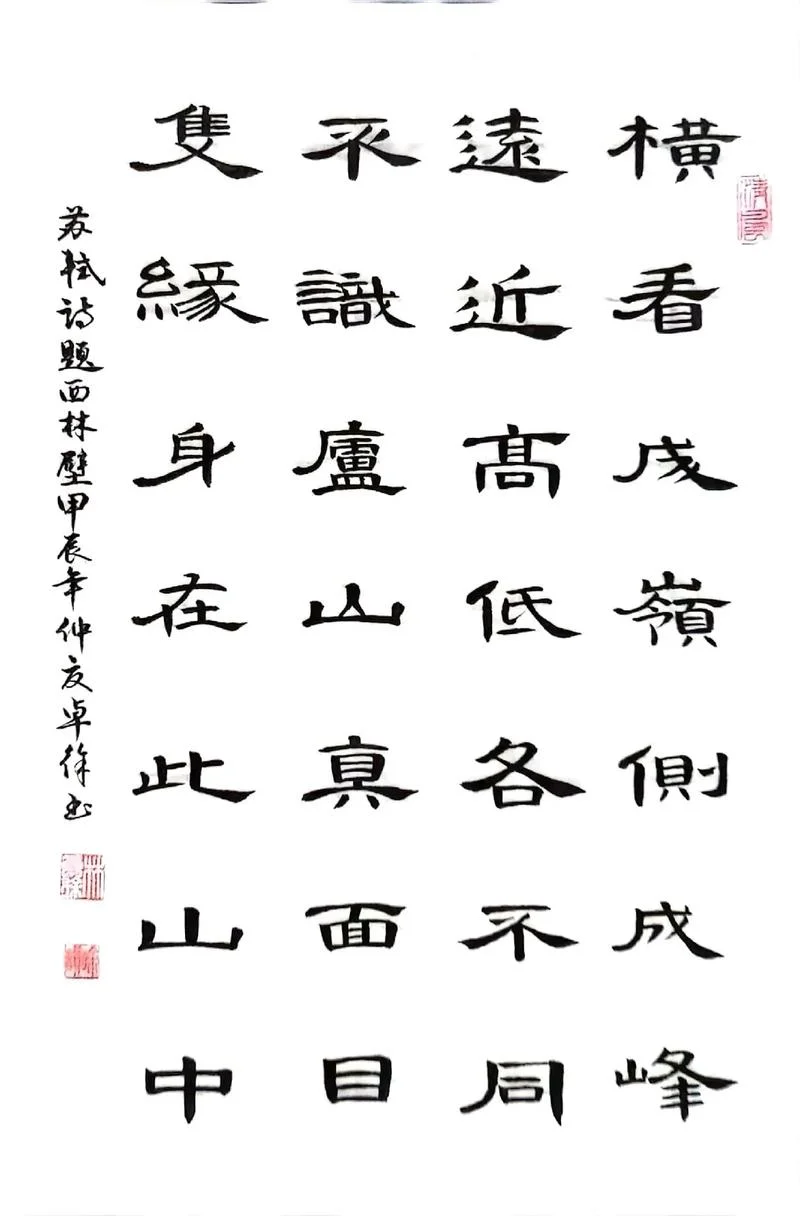 橫看成嶺側成峰
遠近高低各不同
不識廬山真面目
隻緣身在此山中
苏軾詩題西林壁甲辰年仲夏卓徐书